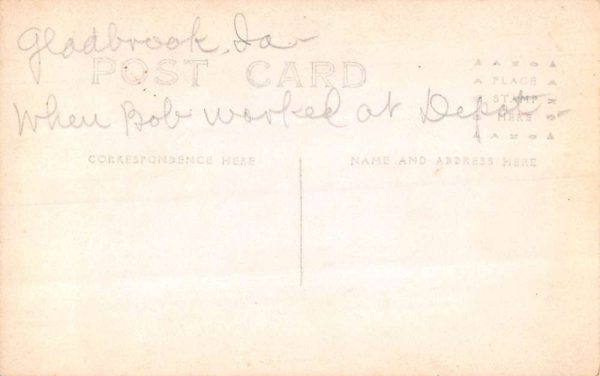 Gladbrook, Ia-
POST CARD
When Bob worked at Depot-
▲ A Z O ▲
PLACE
STAMP
HERE
▲ A Z O ▲
CORRESPONDENCE HERE
NAME AND ADDRESS HERE